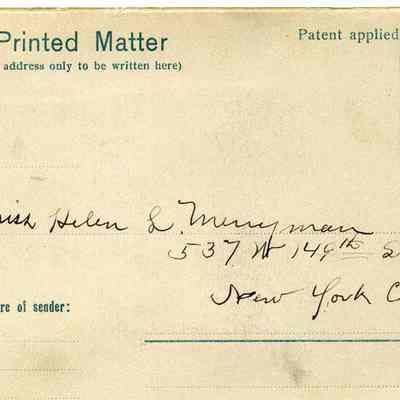 Printed Matter
Patent applied
address only to be written here)
Helen L. Merryman
537 W 149th S
New York C
re of sender: